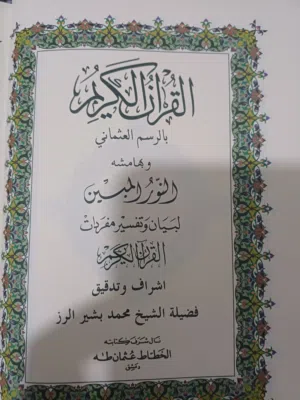 القرآن الكريم
بالرسم العثماني
وبهامشه
النور المبين
لبيان وتفسير مفردات
القرآن الكريم
اشراف وتدقيق
فضيلة الشيخ محمد بشير الرز
نال شرف كتابته
الخطاط عثمان طه